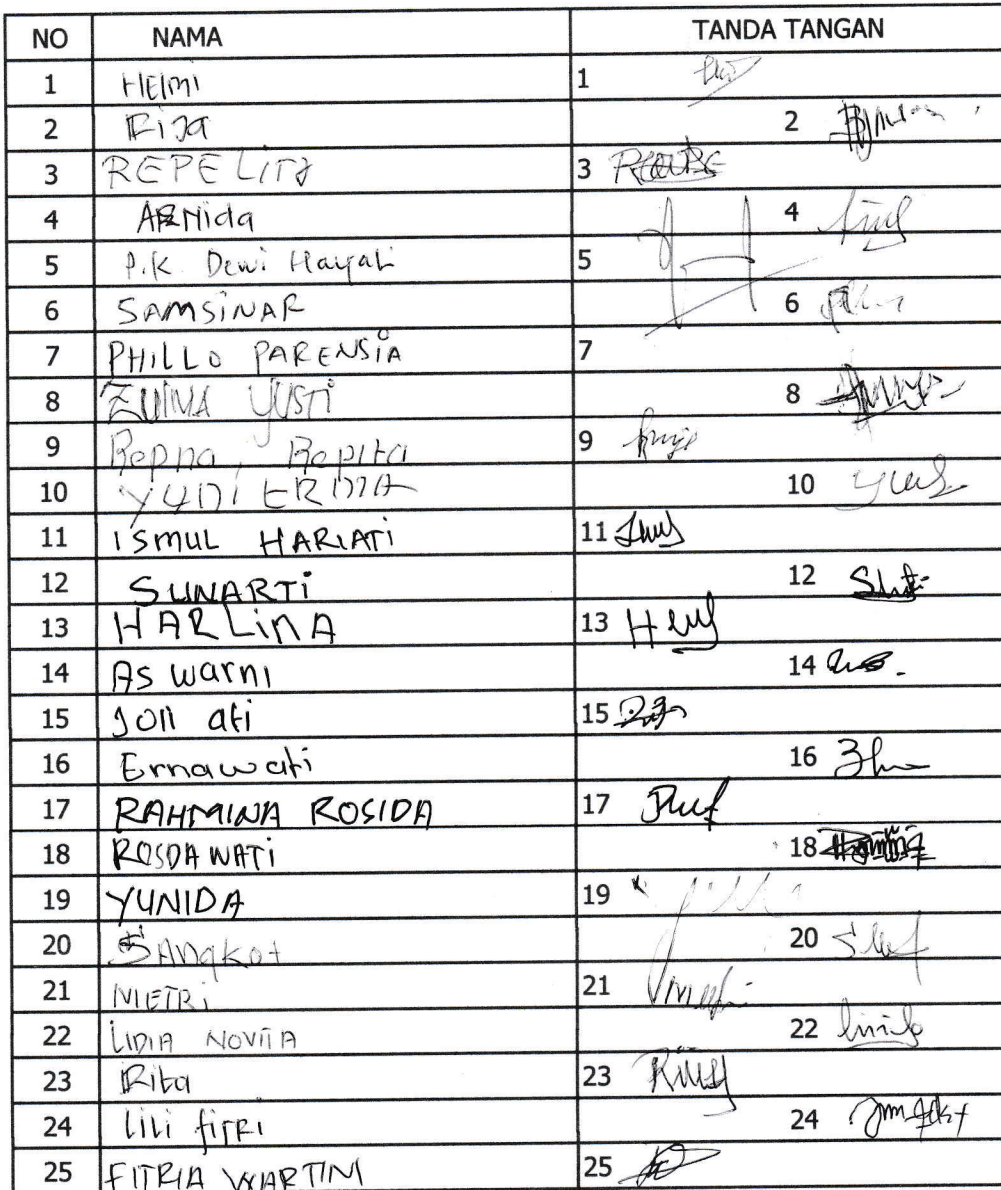 NO NAMA TANDA TANGAN
1 HElmi 1
2 Rija 2
3 REPELITA 3
4 ARNida 4
5 P.K. Dewi Hayati 5
6 SAMSiNAR 6
7 PHILLO PARENSiA 7
8 ZULMA YUSTi 8
9 Repna, Repita 9
10 YUDI ERMA 10
11 iSMUL HARIATi 11
12 SUNARTi 12
13 HARLiNA 13
14 AS warni 14
15 Joll ati 15
16 Ernawati 16
17 RAHMINA ROSIDA 17
18 ROSDAWATi 18
19 YUNIDA 19
20 SANgkot 20
21 METRi 21
22 LIDIA NOVITA 22
23 Rita 23
24 lili fiTRi 24
25 FITRIA WARTINI 25